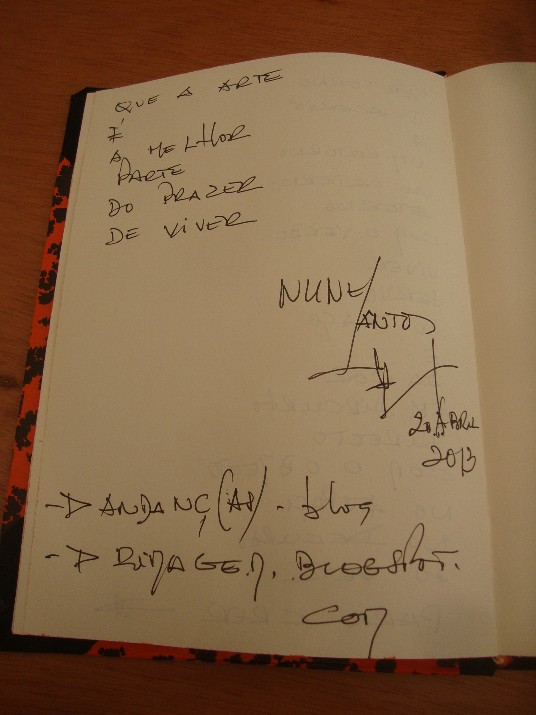 QUE A ARTE
É
A MELHOR
PARTE
DO PRAZER
DE VIVER
NUNE
ANTO
20 ABRIL
2013
ANDANÇ(AS) - blog
RIMAGEM. BLOGSPOT.
COM